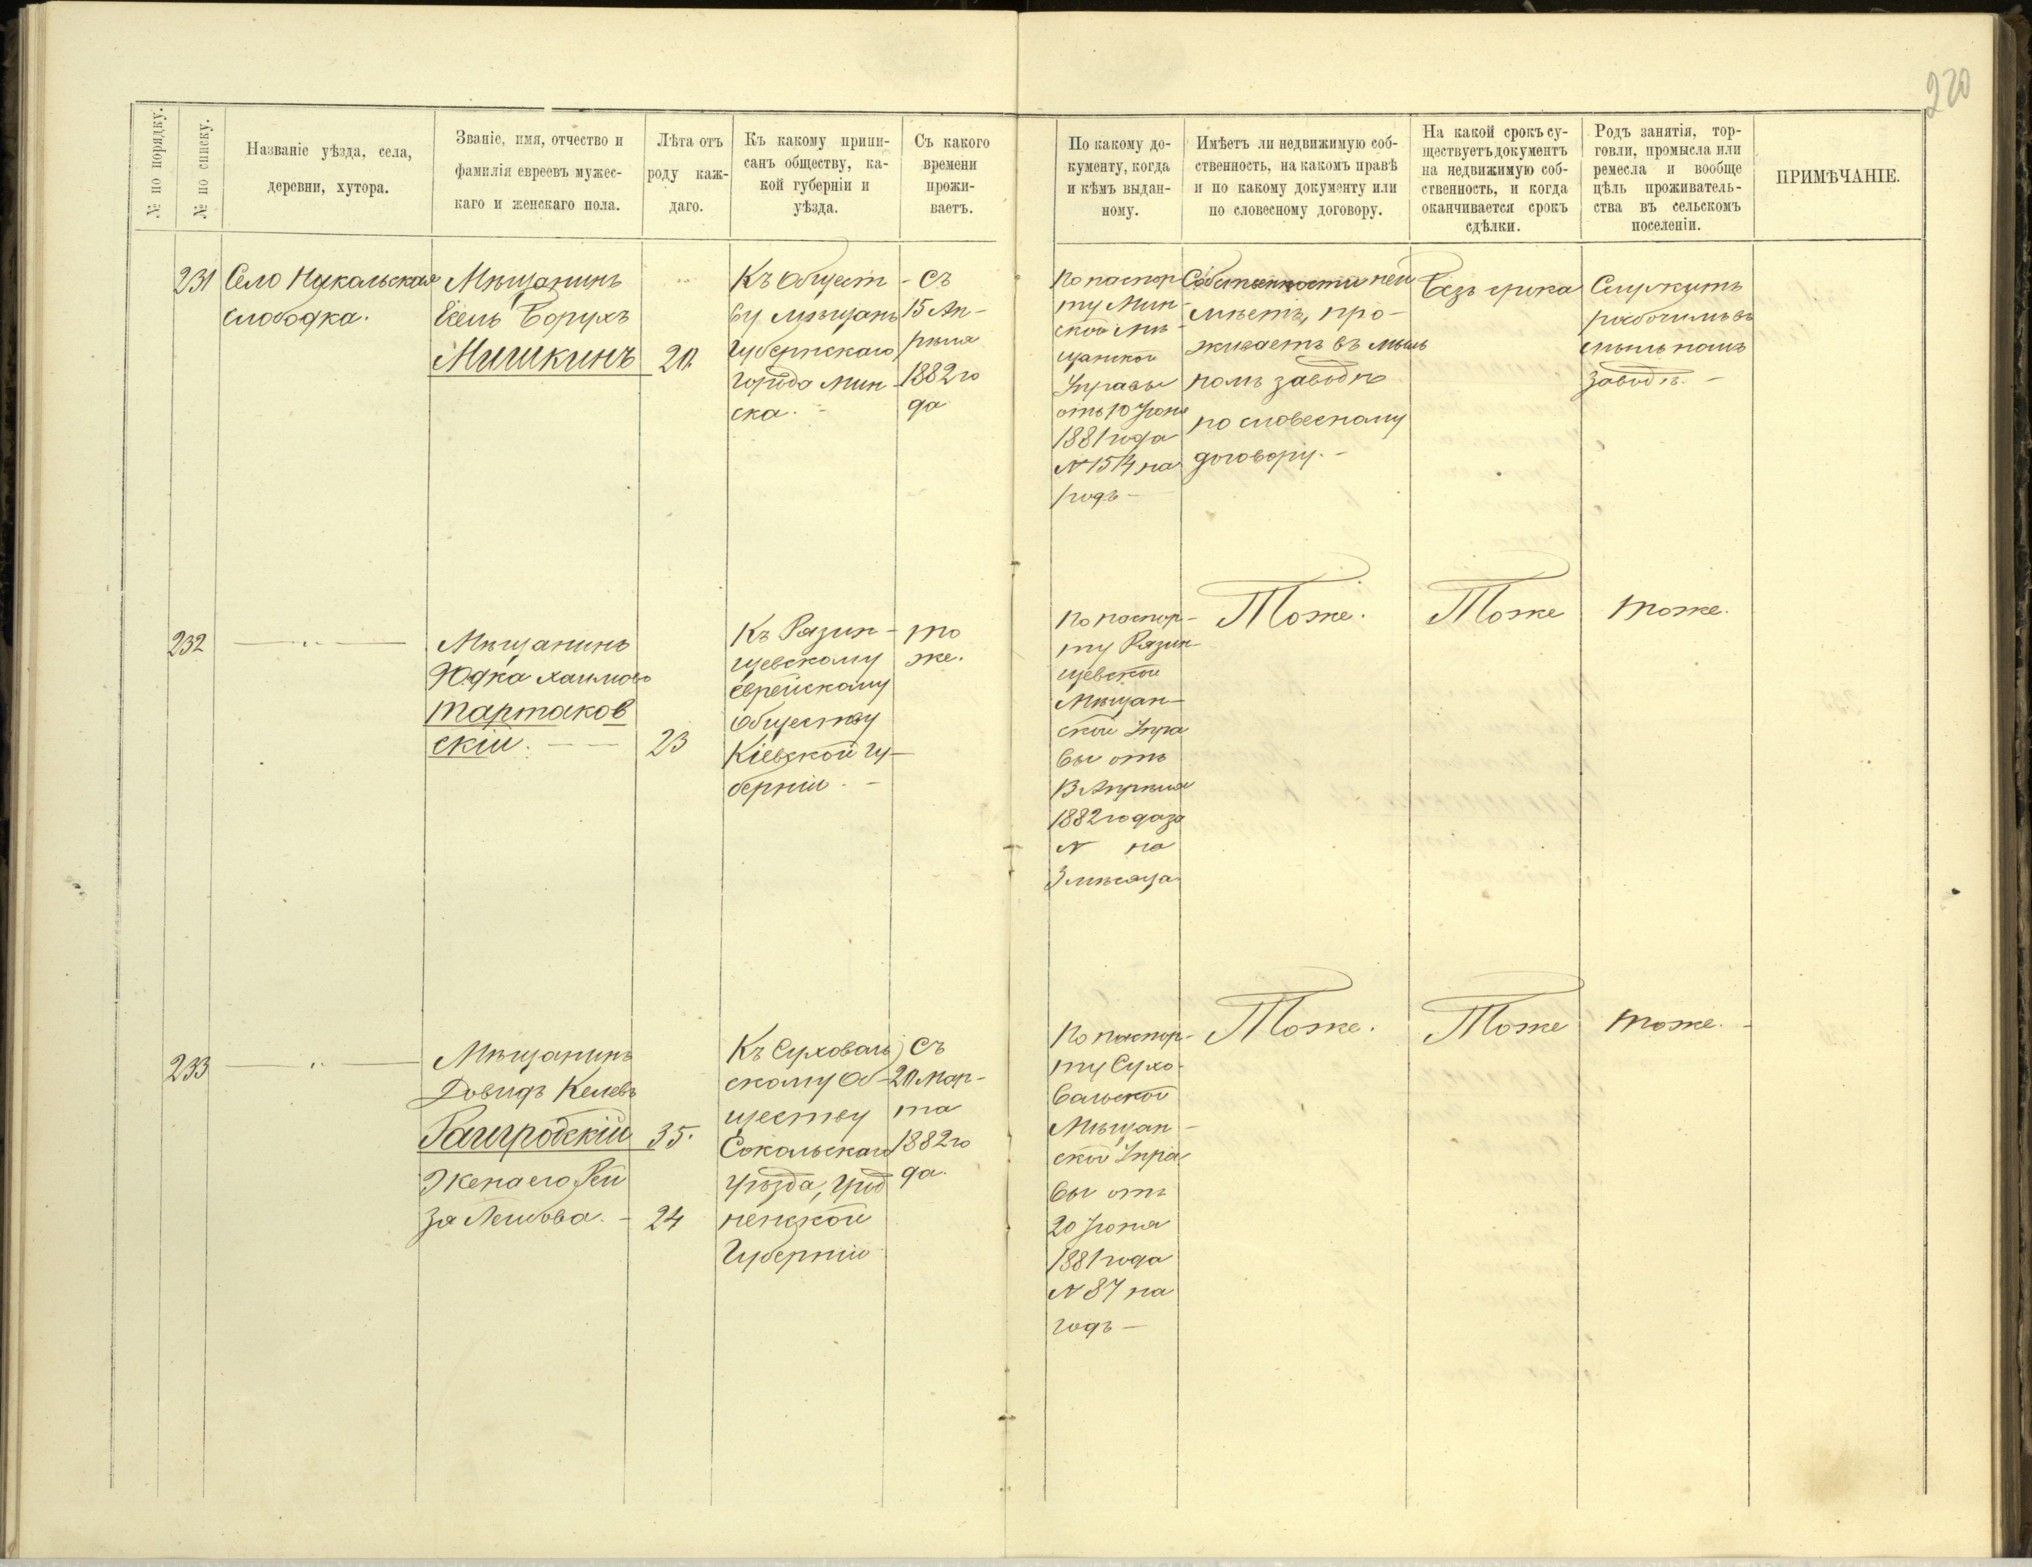 220
№ по порядку.
№ по списку.
Названіе уѣзда, села,
деревни, хутора.
Званіе, имя, отчество и
фамилія евреевъ мужес-
каго и женскаго пола.
Лѣта отъ
роду каж-
даго.
Къ какому припи-
санъ обществу, ка-
кой губерніи и
уѣзда.
Съ какого
времени
прожи-
ваетъ.
По какому до-
кументу, когда
и кѣмъ выдан-
ному.
Имѣетъ ли недвижимую соб-
ственность, на какомъ правѣ
и по какому документу или
по словесному договору.
На какой срокъ су-
ществуетъ документъ
на недвижимую соб-
ственность, и когда
оканчивается срокъ
сдѣлки.
Родъ занятія, тор-
говли, промысла или
ремесла и вообще
цѣль проживатель-
ства въ сельскомъ
поселеніи.
ПРИМѢЧАНІЕ.
231
Село Никольская
слободка.
Мѣщанинъ
Ёсель Борухъ
Мишкинъ
20.
Къ Общест-
ву мѣщанъ
Губернскаго
города Мин-
ска.
Съ
15 Ап-
рѣля
1882 го
да
По паспор-
ту Мин-
ской Мѣ-
щанской
Управы
отъ 10 Іюня
1881 года
№ 1514 на
годъ
Собственности неи
мѣетъ, про-
живаетъ въ мыль
номъ заводѣ
по словесному
договору.
Безъ срока
Служитъ
рабочимъ въ
мыльномъ
заводѣ.
232
"
Мѣщанинъ
Юдка Хаимовъ
Тартаков
скій.
23
Къ Рязин-
щевскому
еврейскому
обществу
Кіевской гу-
берніи.
то
же.
По паспор-
ту Рязин-
щевской
Мѣщан-
ской Упра
вы отъ
13 Апрѣля
1882 года за
№ на
3 мѣсяца
Тоже.
Тоже
тоже.
233
"
Мѣщанинъ
Довидъ Келевъ
Гайгродскій
35.
Жена его Рей
за Лейбова.
24
Къ Суховоль
скому Об-
ществу
Сокольскаго
уѣзда, Грод
ненской
Губерніи
Съ
20 Мар-
та
1882 го
да.
По паспор-
ту Сухо-
вольской
Мѣщан-
ской Упра
вы отъ
20 Іюня
1881 года
№ 87 на
годъ
Тоже.
Тоже
тоже.